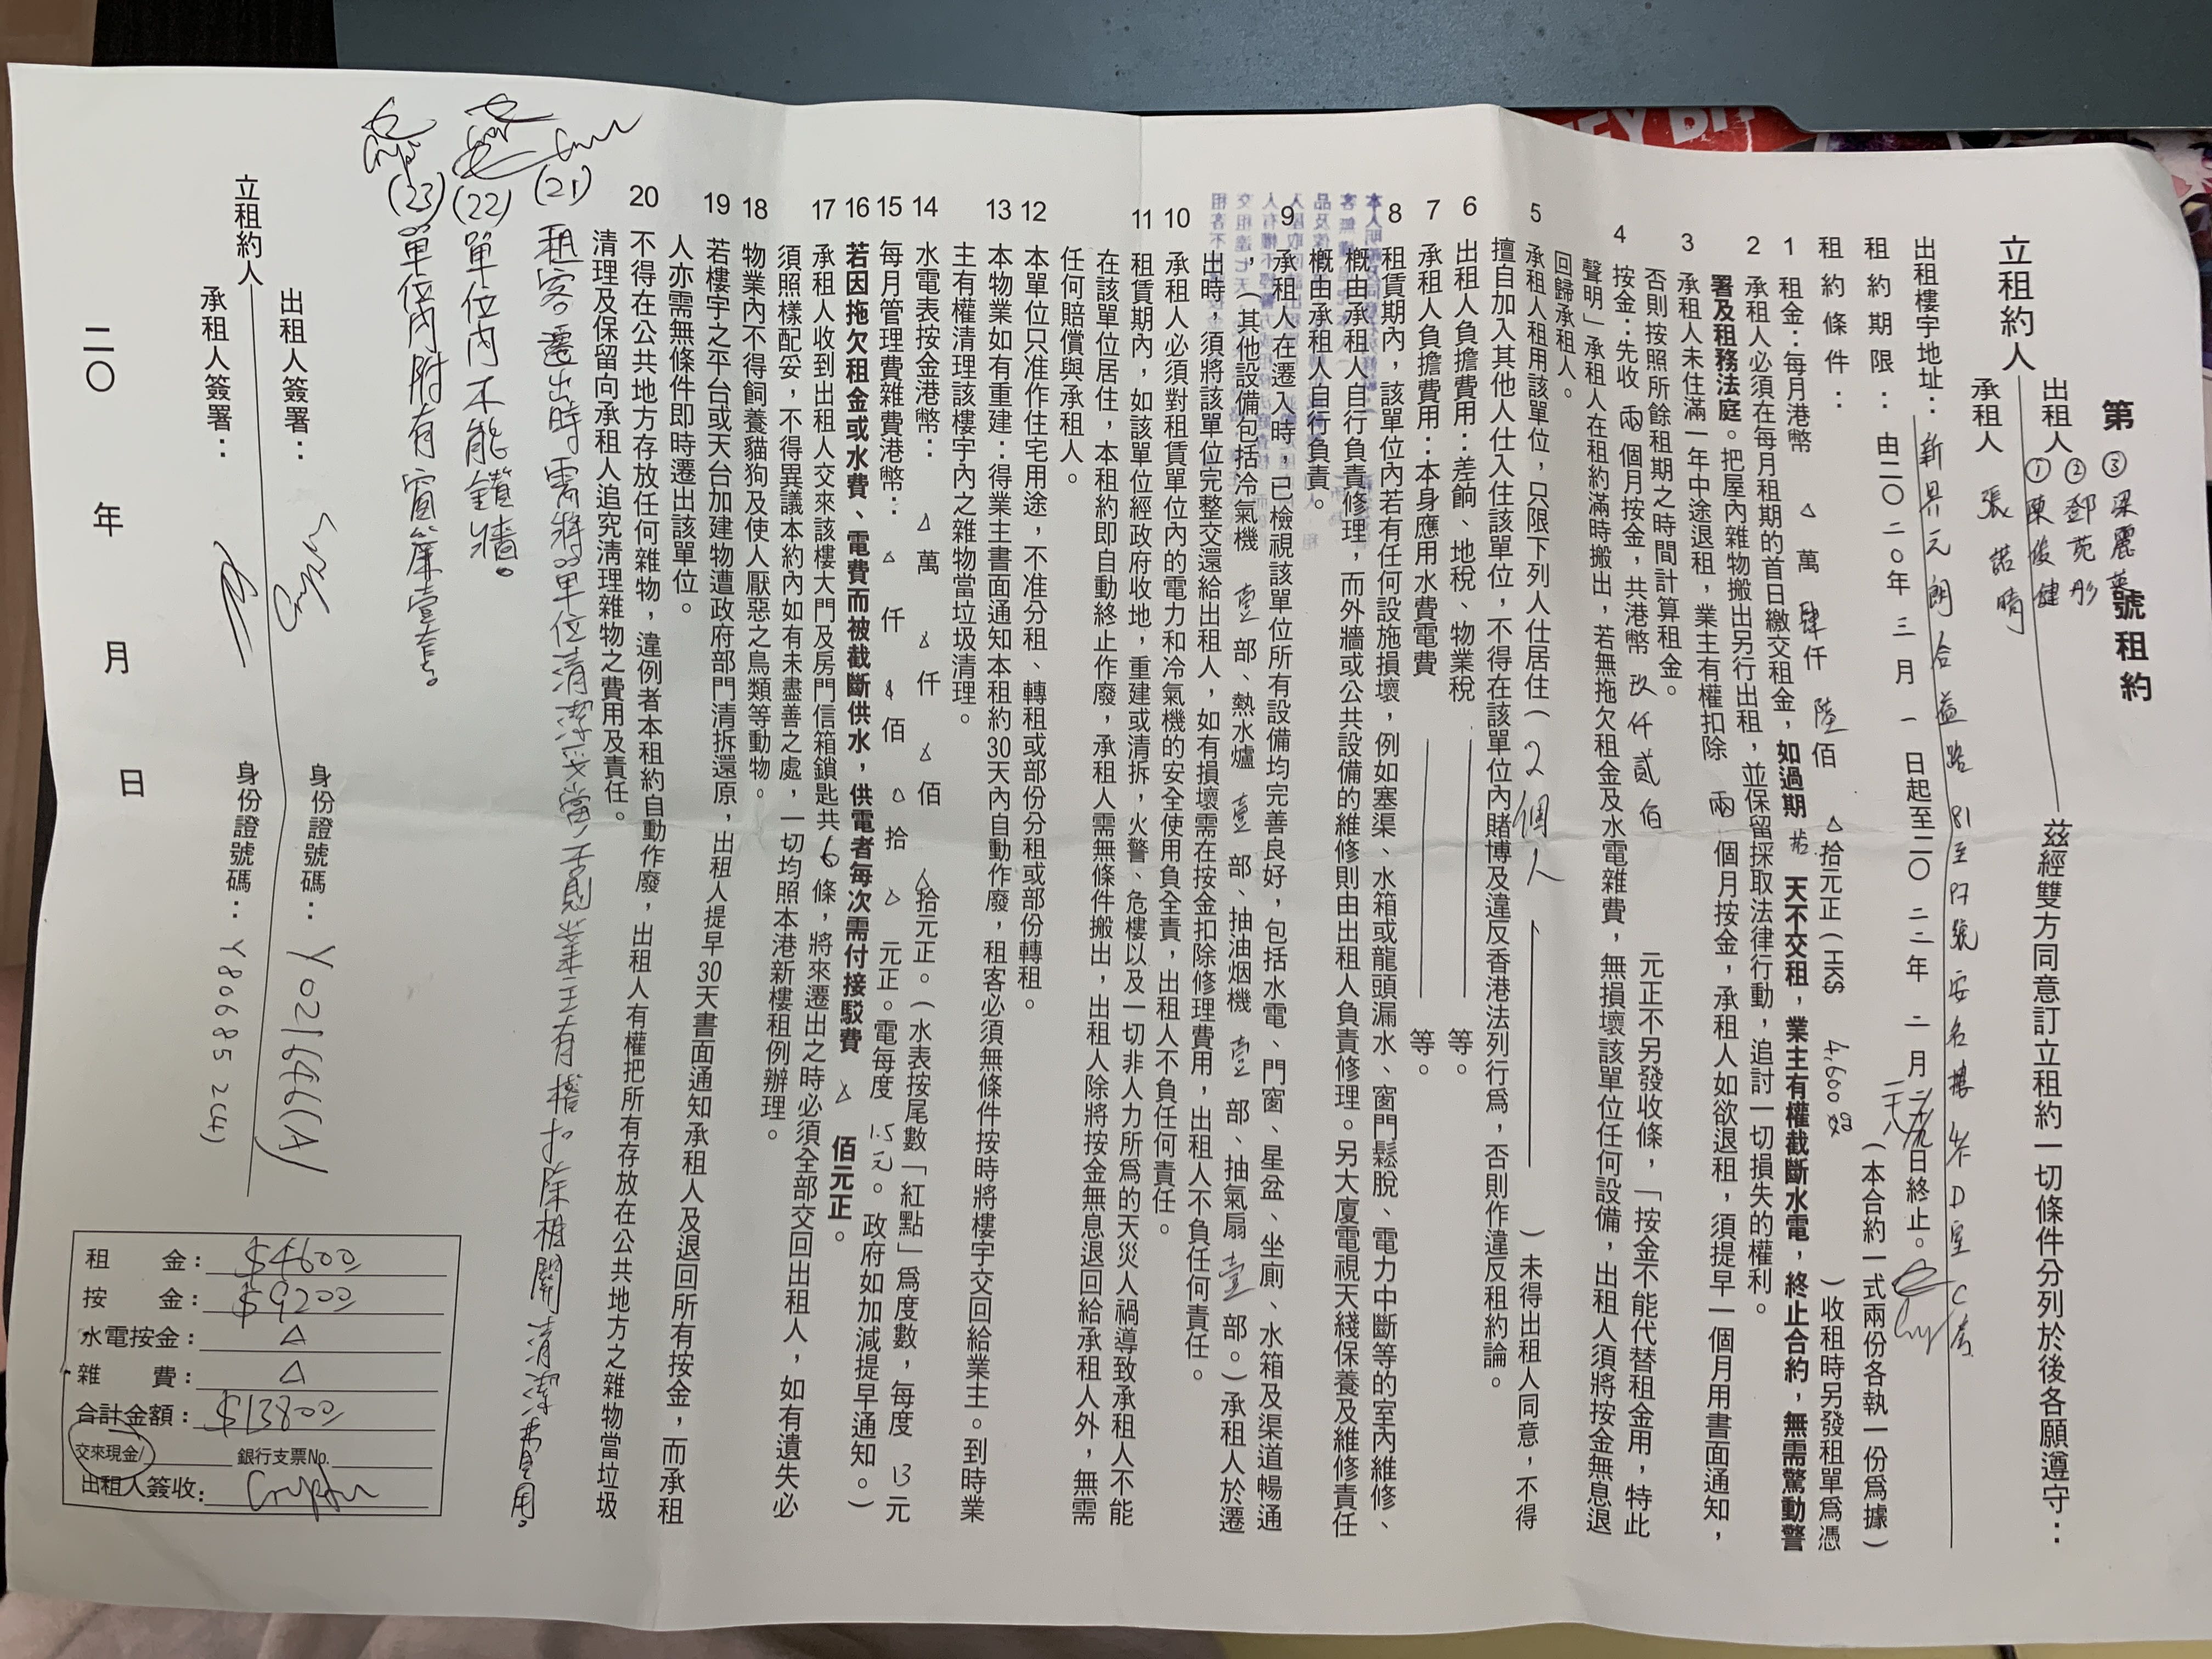 第 號租約
立租約人
出租人 ①陳俊健 ②鄧苑彤 ③梁麗
承租人 張諾晴
茲經雙方同意訂立租約一切條件分列於後各願遵守：
出租樓宇地址：新界元朗合益路81至 號安名樓 D室C房
租約期限：由二0二0年三月一日起至二0二二年二月 日終止。
租約條件： （本合約一式兩份各執一份爲據）
1 租金：每月港幣 △ 萬 肆 仟 陸 佰 △ 拾元正（HK$ 4,600 ）收租時另發租單爲憑
2 承租人必須在每月租期的首日繳交租金，如過期 天不交租，業主有權截斷水電，終止合約，無需驚動警
署及租務法庭。把屋內雜物搬出另行出租，並保留採取法律行動，追討一切損失的權利。
3 承租人未住滿一年中途退租，業主有權扣除 兩 個月按金，承租人如欲退租，須提早一個月用書面通知，
否則按照所餘租期之時間計算租金。
4 按金：先收 兩 個月按金，共港幣 玖仟貳佰 元正不另發收條，「按金不能代替租金用，特此
聲明」承租人在租約滿時搬出，若無拖欠租金及水電雜費，無損壞該單位任何設備，出租人須將按金無息退
回歸承租人。
5 承租人租用該單位，只限下列人仕居住（ 2個人 ）未得出租人同意，不得
擅自加入其他人仕入住該單位，不得在該單位內賭博及違反香港法列行爲，否則作違反租約論。
6 出租人負擔費用：差餉、地稅、物業稅 等。
7 承租人負擔費用：本身應用水費電費 等。
8 租賃期內，該單位內若有任何設施損壞，例如塞渠、水箱或龍頭漏水、窗門鬆脫、電力中斷等的室內維修、
概由承租人自行負責修理，而外牆或公共設備的維修則由出租人負責修理。另大廈電視天綫保養及維修責任
概由承租人自行負責。
9 承租人在遷入時，已檢視該單位所有設備均完善良好，包括水電、門窗、星盆、坐廁、水箱及渠道暢通
，（其他設備包括冷氣機 壹 部、熱水爐 壹 部、抽油烟機 壹 部、抽氣扇 壹 部。）承租人於遷
出時，須將該單位完整交還給出租人，如有損壞需在按金扣除修理費用，出租人不負任何責任。
10 承租人必須對租賃單位內的電力和冷氣機的安全使用負全責，出租人不負任何責任。
11 租賃期內，如該單位經政府收地，重建或清拆，火警、危樓以及一切非人力所爲的天災人禍導致承租人不能
在該單位居住，本租約即自動終止作廢，承租人需無條件搬出，出租人除將按金無息退回給承租人外，無需
任何賠償與承租人。
12 本單位只准作住宅用途，不准分租、轉租或部份分租或部份轉租。
13 本物業如有重建：得業主書面通知本租約30天內自動作廢，租客必須無條件按時將樓宇交回給業主。到時業
主有權清理該樓宇內之雜物當垃圾清理。
14 水電表按金港幣： △ 萬 △ 仟 △ 佰 △ 拾元正。（水表按尾數「紅點」爲度數，每度 13 元
15 每月管理費雜費港幣： △ 仟 △ 佰 △ 拾 △ 元正。電每度 1.5元。政府如加減提早通知。）
16 若因拖欠租金或水費、電費而被截斷供水，供電者每次需付接駁費 △ 佰元正。
17 承租人收到出租人交來該樓大門及房門信箱鎖匙共 6 條，將來遷出之時必須全部交回出租人，如有遺失必
須照樣配妥，不得異議本約內如有未盡善之處，一切均照本港新樓租例辦理。
18 物業內不得飼養貓狗及使人厭惡之鳥類等動物。
19 若樓宇之平台或天台加建物遭政府部門清拆還原，出租人提早30天書面通知承租人及退回所有按金，而承租
人亦需無條件即時遷出該單位。
20 不得在公共地方存放任何雜物，違例者本租約自動作廢，出租人有權把所有存放在公共地方之雜物當垃圾
清理及保留向承租人追究清理雜物之費用及責任。
(21) 租客遷出時需將單位清潔妥當，否則業主有權扣除相關清潔費用。
(22) 單位內不能鑽牆。
(23) 單位內附有窗簾壹套。
立租約人
出租人簽署： 身份證號碼：Y021646(A)
承租人簽署： 身份證號碼：Y806852(4)
二〇 年 月 日
租 金：$4600
按 金：$9200
水電按金：△
雜 費：△
合計金額：$13800
交來現金/ 銀行支票No.
出租人簽收：